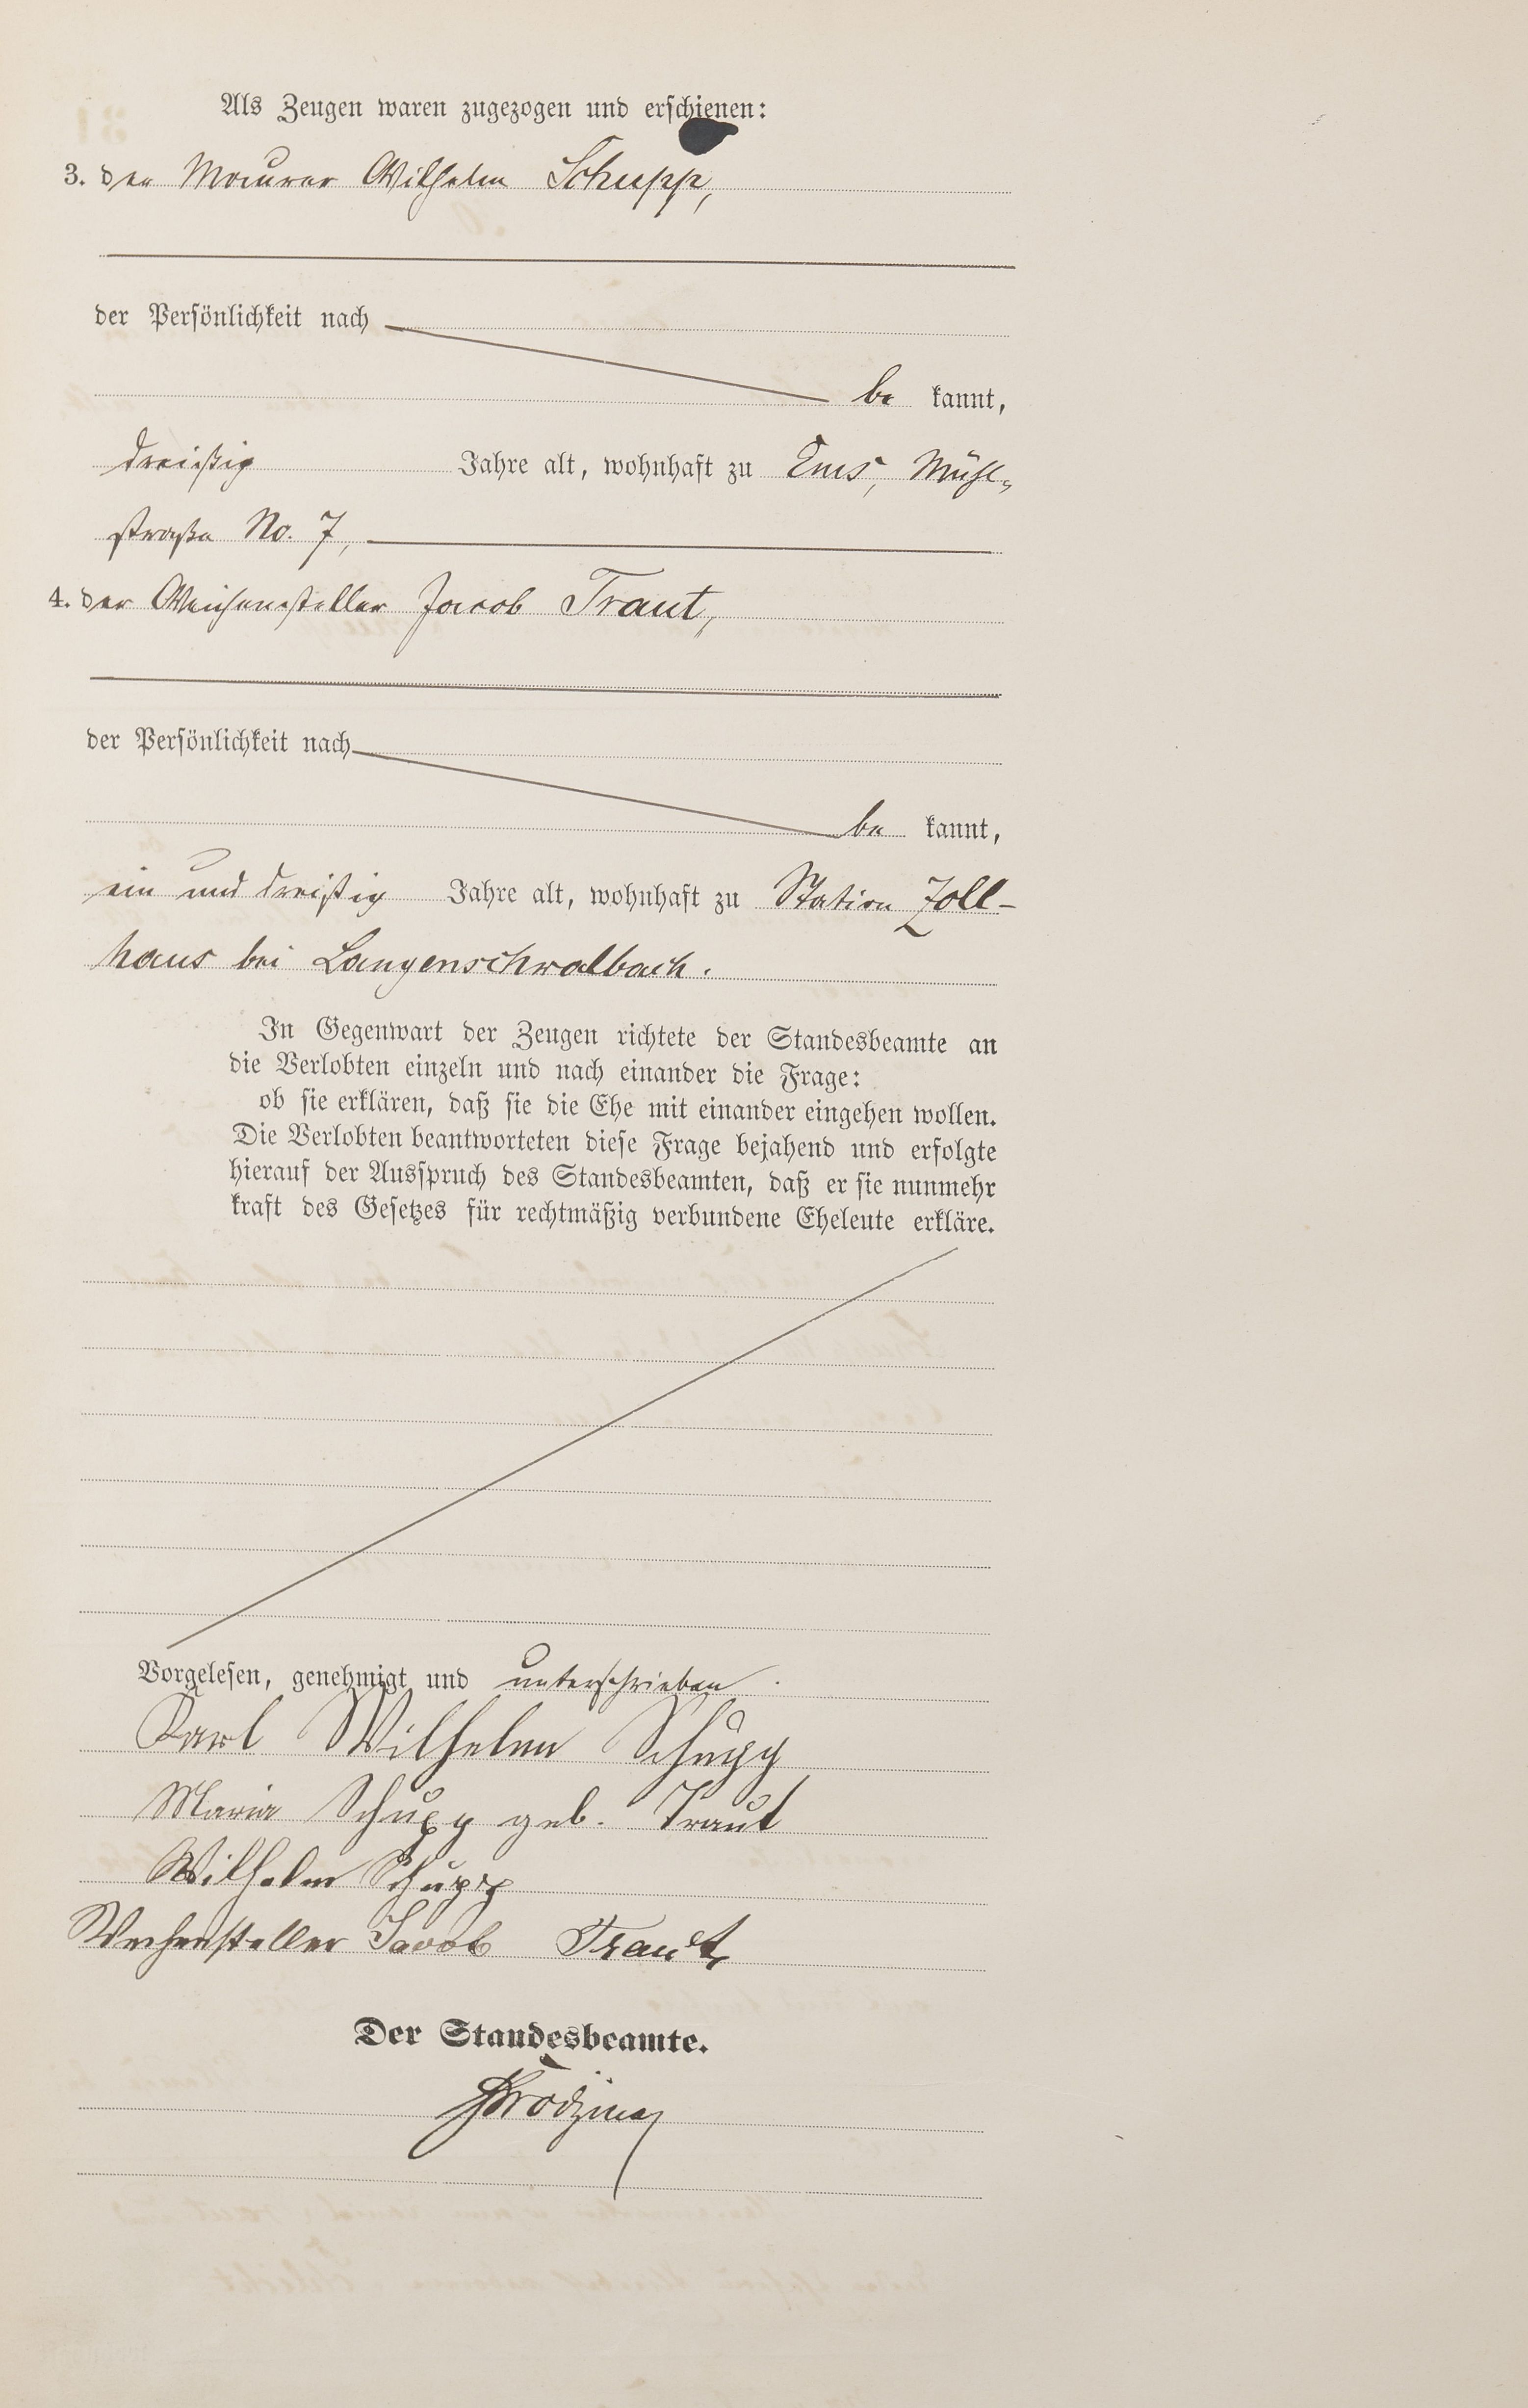 Als Zeugen waren zugezogen und erschienen:
3. der Maurer Wilhelm Schupp,
der Persönlichkeit nach
be kannt,
dreißig Jahre alt, wohnhaft zu Ems, Mühl-
straße No. 7,
4. der Weichensteller Jacob Traut,
der Persönlichkeit nach
be kannt,
ein und dreißig Jahre alt, wohnhaft zu Station Zoll-
haus bei Langenschwalbach.
In Gegenwart der Zeugen richtete der Standesbeamte an
die Verlobten einzeln und nach einander die Frage:
ob sie erklären, daß sie die Ehe mit einander eingehen wollen.
Die Verlobten beantworteten diese Frage bejahend und erfolgte
hierauf der Ausspruch des Standesbeamten, daß er sie nunmehr
kraft des Gesetzes für rechtmäßig verbundene Eheleute erkläre.
Vorgelesen, genehmigt und unterschrieben.
Karl Wilhelm Schupp
Maria Schupp geb. Traut
Wilhelm Schupp
Weichensteller Jacob Traut
Der Standesbeamte.